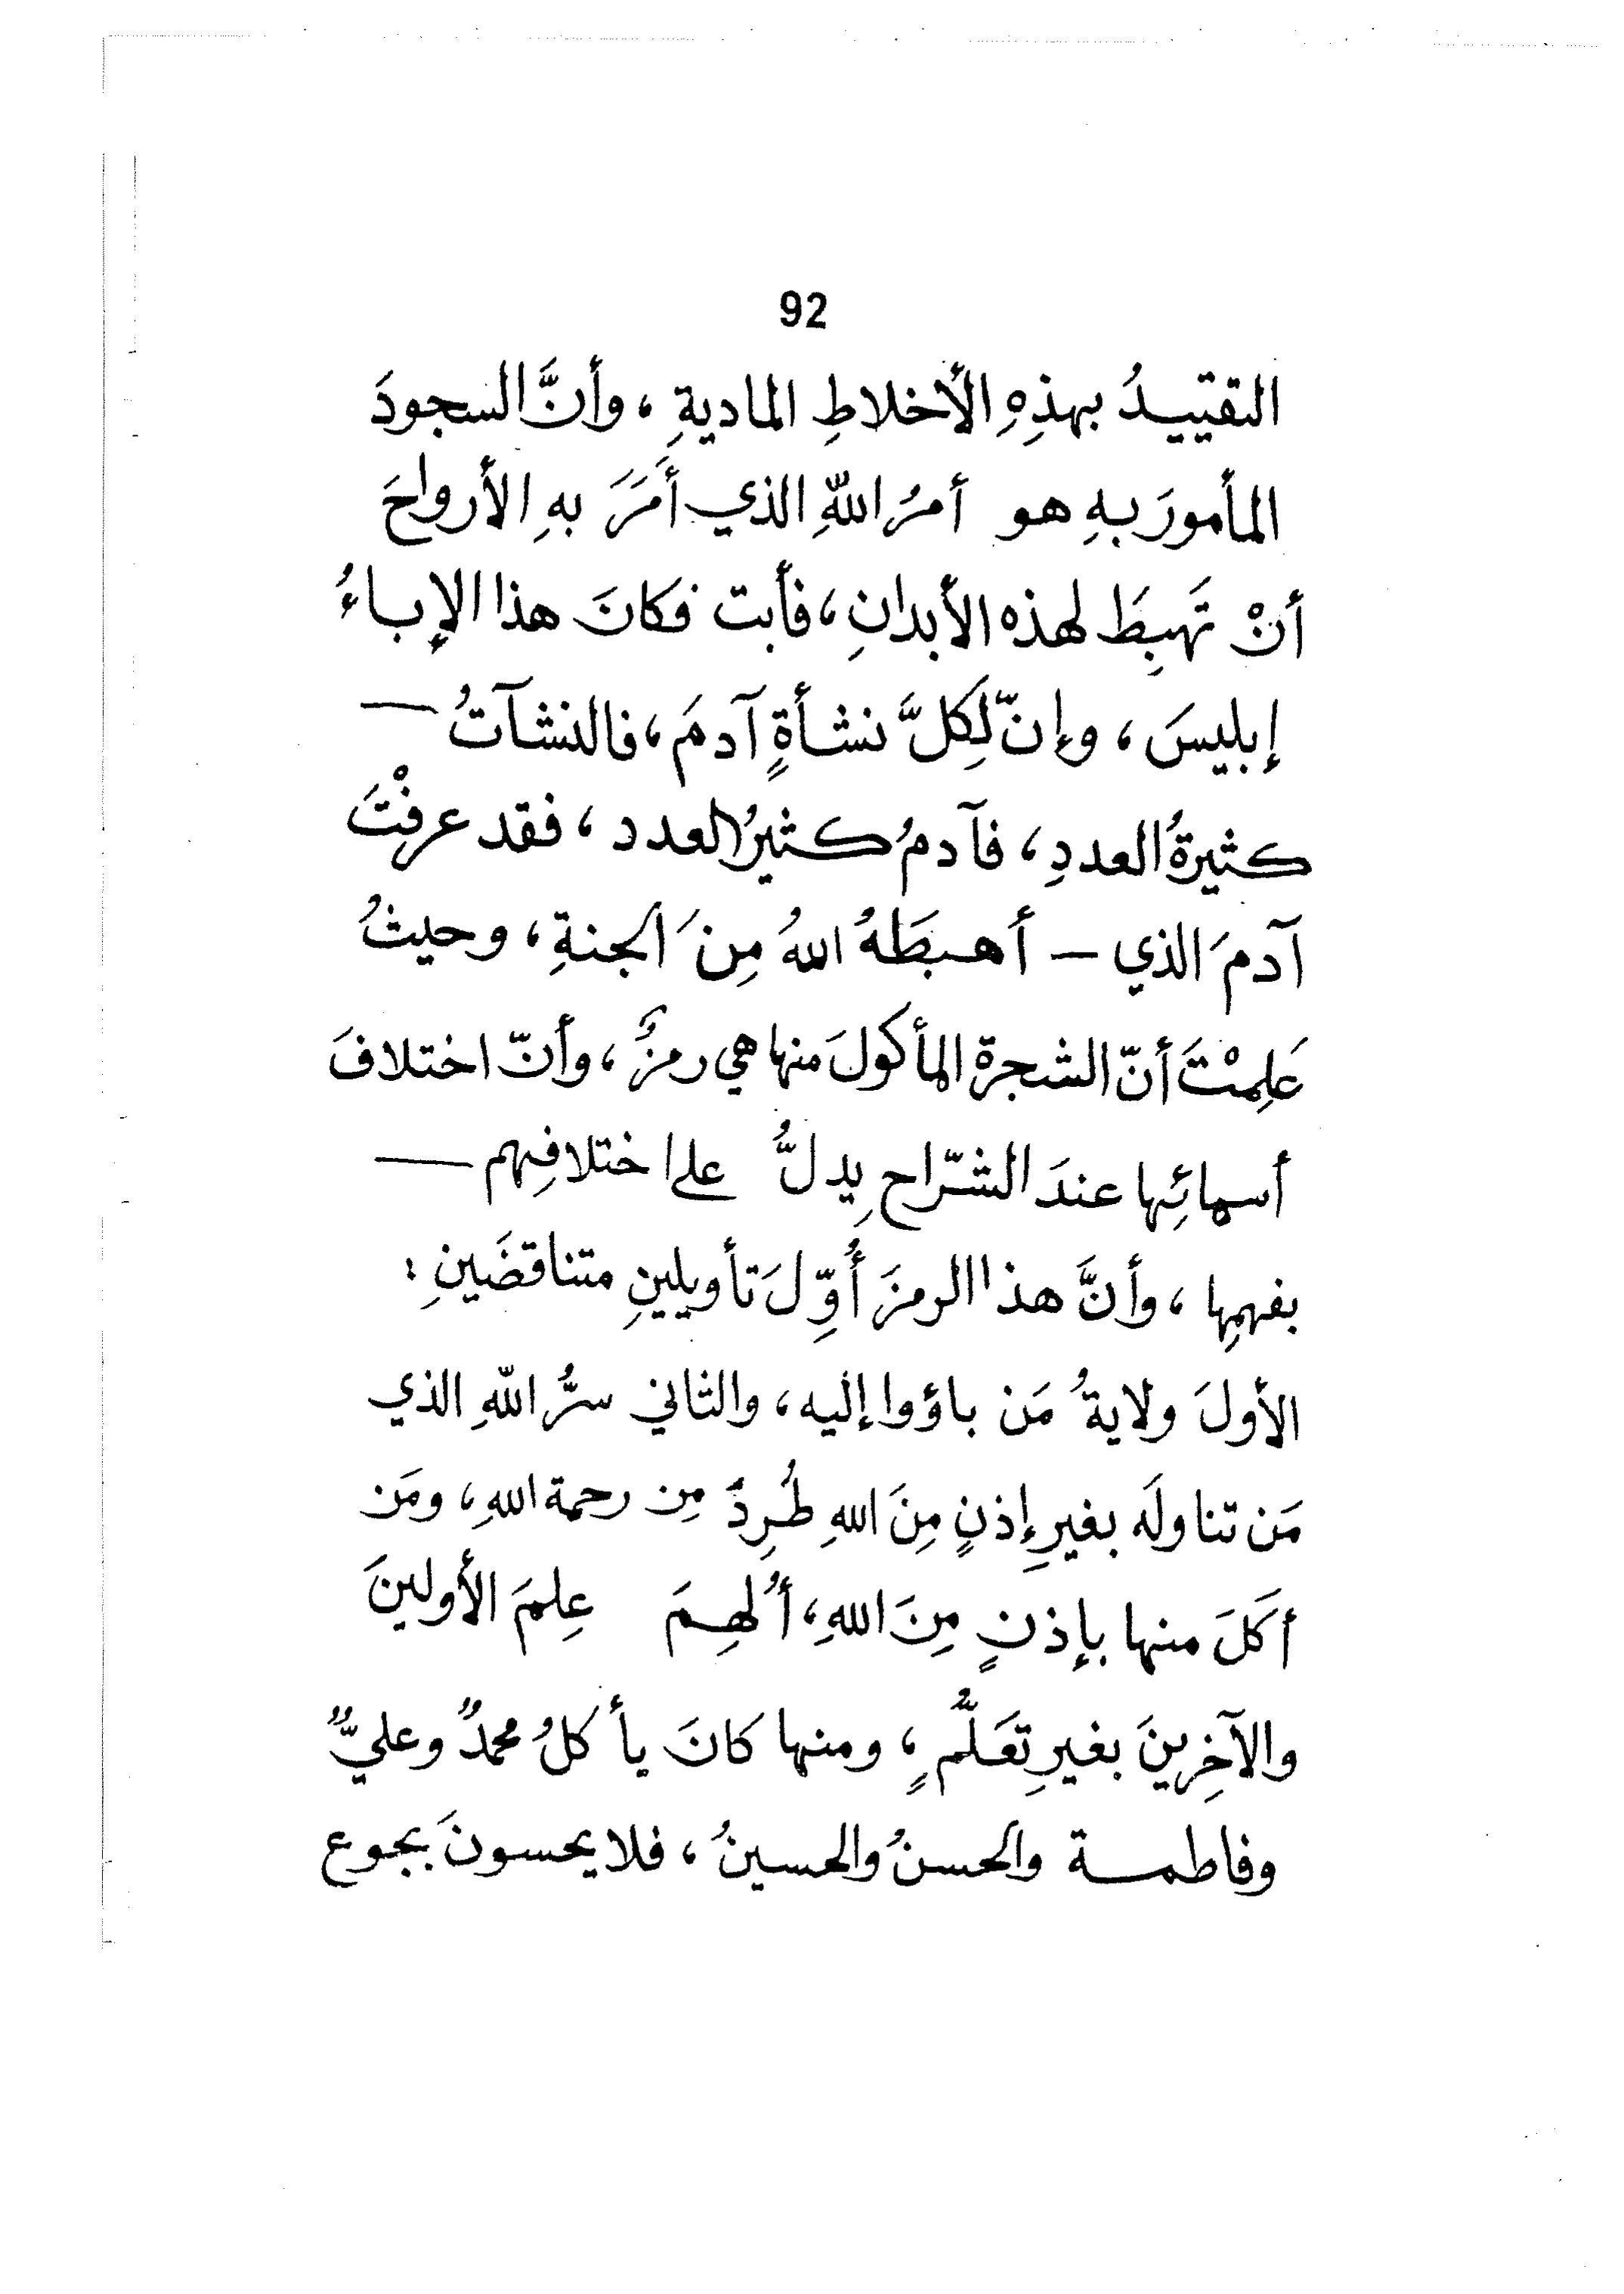 92
التقييدُ بهذِهِ الأخلاطِ الماديةِ ، وأنَّ السجودَ
المأمورَ بهِ هو أمرُ اللّهِ الذي أَمَرَ بهِ الأرواحَ
أنْ تَهبِطَ لهذه الأبدانِ ، فأبت فكانَ هذا الإباءُ
إبليسَ ، وإنّ لِكلَّ نشأةٍ آدمَ ، فالنشآتُ —
كثيرةُ العددِ ، فآدمُ كثيرُ العدد ، فقد عرفْتَ
آدمَ الذي — أهبطَهُ اللهُ مِنَ الجنةِ ، وحيثُ
عَلِمْتَ أنّ الشجرة المأكولَ منها هي رمزٌ ، وأنّ اختلافَ
أسمائِها عندَ الشرّاحِ يدلُّ على اختلافِهم —
بفهمِها ، وأنَّ هذا الرمزَ أُوِّلَ تأويلينِ متناقضَينِ :
الأولَ ولايةُ مَن باؤوا إليه ، والثاني سرُّ اللّهِ الذي
مَن تناولَه بغيرِ إذنٍ مِنَ اللهِ طُرِدَ مِن رحمة اللهِ ، ومَن
أكَلَ منها بإذنٍ مِنَ اللهِ ، أُلهِمَ عِلمَ الأولينَ
والآخِرينَ بغيرِ تعَلُّمٍ ، ومنها كانَ يأكلُ محمدٌ وعليٌّ
وفاطمة والحسنُ والحسينُ ، فلا يحسونَ بجوع